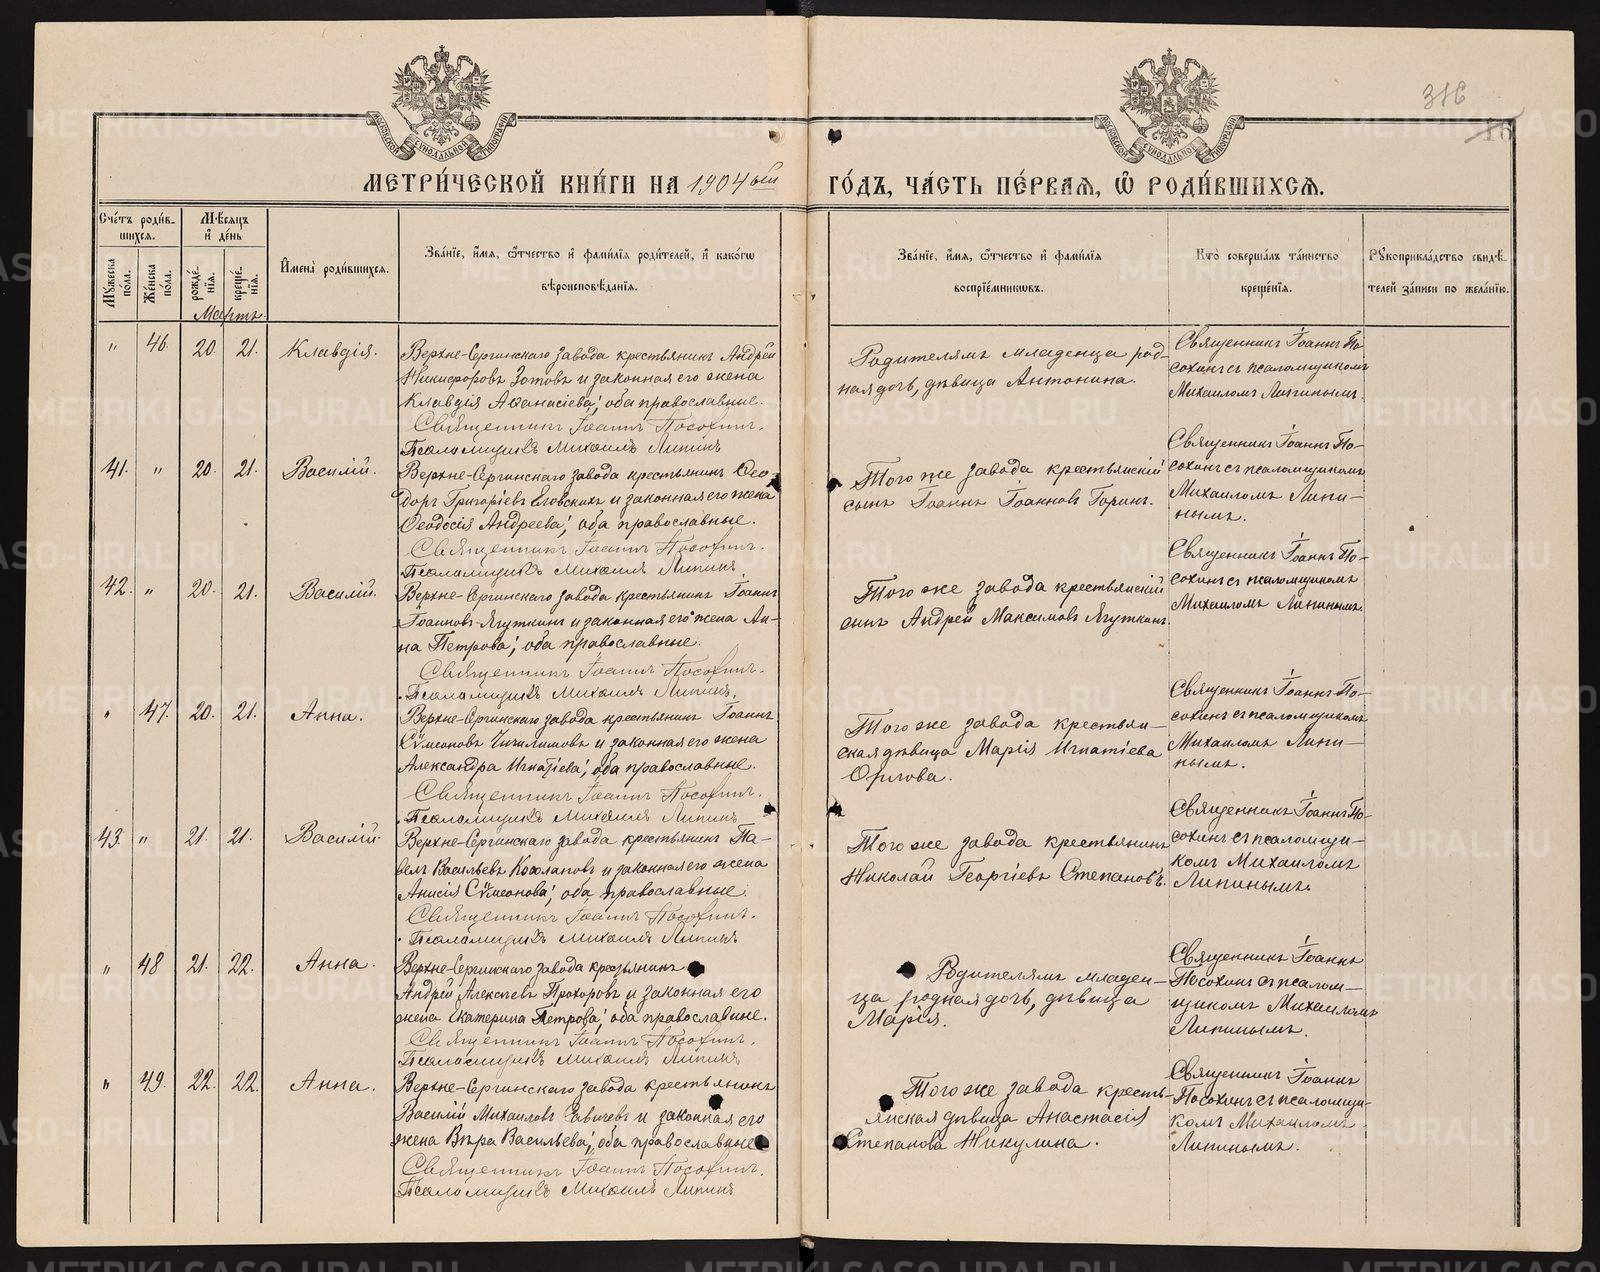 316
16
МОСКОВСКОЙ СѴНОДАЛЬНОЙ ТИПОГРАФІИ
МОСКОВСКОЙ СѴНОДАЛЬНОЙ ТИПОГРАФІИ
МЕТРИ́ЧЕСКОЙ КНИ́ГИ НА 1904 ый
ГО́ДЪ, ЧА́СТЬ ПЕ́РВАЯ, Ѡ҆ РОДИ́ВШИХСЯ.
Сче́тъ роди́в-
шихся.
Му́жеска по́ла.
Же́нска по́ла.
Мѣ́сяцъ
и҆ де́нь
рожде́-
нїя.
креще́-
нїя.
И҆мена̀ роди́вшихся.
Зва́нїе, и҆́мя, ѻ҆́тчество и҆ фами́лїя роди́телей, и҆ како́гѡ
вѣроисповѣ́данїя.
Зва́нїе, и҆́мя, ѻ҆́тчество и҆ фами́лїя
воспрїе́мникѡвъ.
Кто̀ соверша́лъ та́инство
креще́нїя.
Рꙋкоприкла́дство свидѣ́-
телей за́писи по жела́нїю.
Мартъ.
" 46. 20. 21. Клавдія.
Верхне-Сергинскаго завода крестьянинъ Андрей
Никифоровъ Зотовъ и законная его жена
Клавдія Аѳанасіева; оба православные.
Священникъ Іоаннъ Посохинъ.
Псаломщикъ Михаилъ Липинъ
Родителямъ младенца род-
ная дочь, дѣвица Антонина.
Священникъ Іоаннъ По-
сохинъ съ псаломщикомъ
Михаиломъ Липинымъ.
41. " 20. 21. Василій.
Верхне-Сергинскаго завода крестьянинъ Ѳео-
доръ Григоріевъ Еговскихъ и законная его жена
Ѳеодосія Андреева; оба православные.
Священникъ Іоаннъ Посохинъ.
Псаломщикъ Михаилъ Липинъ.
Того же завода крестьянскій
сынъ Іоаннъ Іоанновъ Горинъ.
Священникъ Іоаннъ По-
сохинъ съ псаломщикомъ
Михаиломъ Липи-
нымъ.
42. " 20. 21. Василій.
Верхне-Сергинскаго завода крестьянинъ Іоаннъ
Іоанновъ Ягуткинъ и законная его жена Ан-
на Петрова; оба православные.
Священникъ Іоаннъ Посохинъ.
Псаломщикъ Михаилъ Липинъ.
Того же завода крестьянскій
сынъ Андрей Максимовъ Ягуткинъ.
Священникъ Іоаннъ По-
сохинъ съ псаломщикомъ
Михаиломъ Липинымъ.
" 47. 20. 21. Анна.
Верхне-Сергинскаго завода крестьянинъ Іоаннъ
Сѵмеоновъ Чичилимовъ и законная его жена
Александра Игнатіева; оба православные.
Священникъ Іоаннъ Посохинъ.
Псаломщикъ Михаилъ Липинъ
Того же завода крестьян-
ская дѣвица Марія Игнатіева
Орлова.
Священникъ Іоаннъ По-
сохинъ съ псаломщикомъ
Михаиломъ Липи-
нымъ.
43. " 21. 21. Василій.
Верхне-Сергинскаго завода крестьянинъ Па-
велъ Васильевъ Козлаповъ и законная его жена
Анисія Сѵмеонова; оба православные.
Священникъ Іоаннъ Посохинъ.
Псаломщикъ Михаилъ Липинъ
Того же завода крестьянинъ
Николай Георгіевъ Степановъ.
Священникъ Іоаннъ По-
сохинъ съ псаломщи-
комъ Михаиломъ
Липинымъ.
" 48 21. 22. Анна.
Верхне-Сергинскаго завода крестьянинъ
Андрей Алексѣевъ Прохоровъ и законная его
жена Екатерина Петрова; оба православные.
Священникъ Іоаннъ Посохинъ.
Псаломщикъ Михаилъ Липинъ
Родителямъ младен-
ца родная дочь, дѣвица
Марія.
Священникъ Іоаннъ
Посохинъ съ псалом-
щикомъ Михаиломъ
Липинымъ.
" 49. 22. 22. Анна.
Верхне-Сергинскаго завода крестьянинъ
Василій Михаиловъ Савичевъ и законная его
жена Вѣра Васильева; оба православные
Священникъ Іоаннъ Посохинъ.
Псаломщикъ Михаилъ Липинъ
Того же завода кресть-
янская дѣвица Анастасія
Степанова Никулина.
Священникъ Іоаннъ
Посохинъ съ псаломщи-
комъ Михаиломъ
Липинымъ.
METRIKI.GASO-URAL.RU